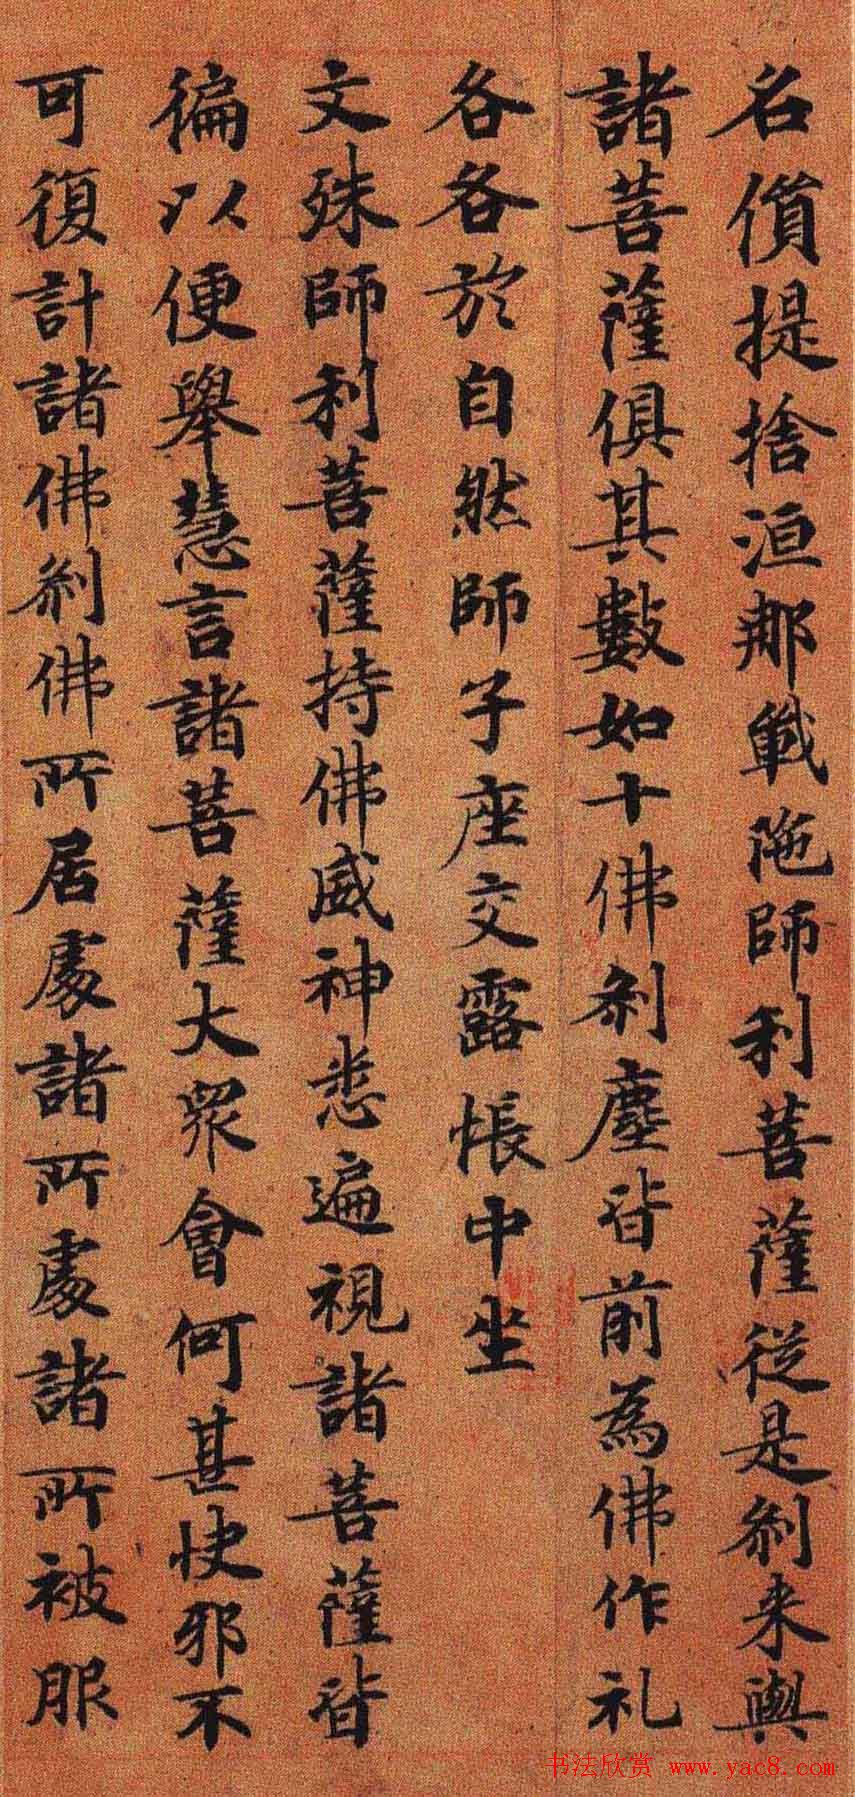 名償提捨洹那戰陁師利菩薩從是剎来與
諸菩薩俱其數如十佛剎塵皆前為佛作礼
各各於自然師子座交露帳中坐
文殊師利菩薩持佛威神悉遍視諸菩薩皆
徧以便舉慧言諸菩薩大眾會何甚快邪不
可復計諸佛剎佛所居處諸所處諸所被服
书法欣赏 www.yac8.com